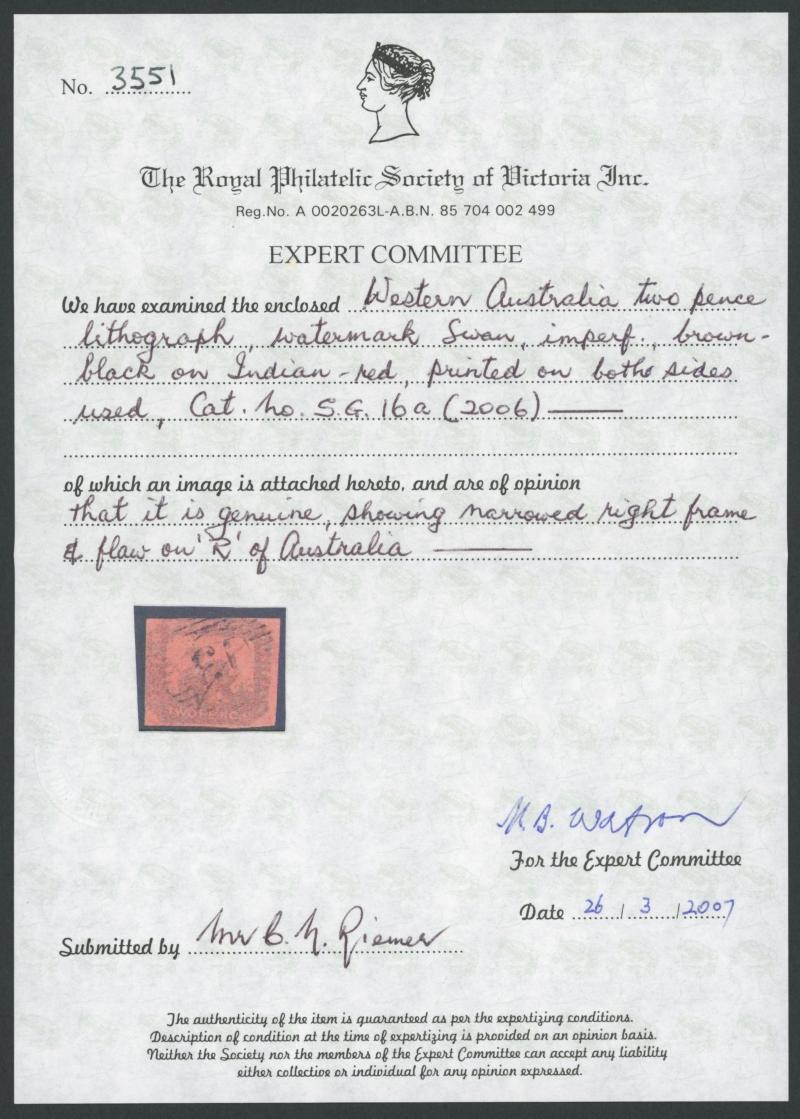 No. 3551
The Royal Philatelic Society of Victoria Inc.
Reg.No. A 0020263L-A.B.N. 85 704 002 499
EXPERT COMMITTEE
We have examined the enclosed Western Australia two pence
lithograph, watermark Swan, imperf., brown-
black on Indian-red, printed on both sides
used, Cat. No. S.G. 16a (2006)
of which an image is attached hereto, and are of opinion
that it is genuine, showing narrowed right frame
& flaw on 'R' of Australia
15
TWOPENCE
M. B. Watson
For the Expert Committee
Date 26/3/2007
Submitted by Mr C. N. Riemer
The authenticity of the item is guaranteed as per the expertizing conditions.
Description of condition at the time of expertizing is provided on an opinion basis.
Neither the Society nor the members of the Expert Committee can accept any liability
either collective or individual for any opinion expressed.